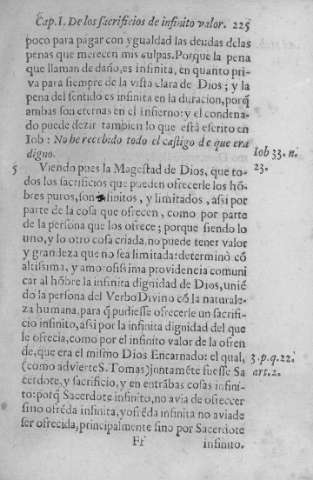 Cap. I. De los sacrificios de infinito valor. 225
poco para pagar con ygualdad las deudas delas
penas que merecen mis culpas. Porque la pena
que llaman de daño, es infinita, en quanto pri-
va para siempre de la vista clara de Dios; y la
pena del sentido es infinita en la duracion, porq̃
ambas son eternas en el infierno: y el condena-
do puede dezir tambien lo que está escrito en
Iob: No he recebido todo el castigo de que era
digno.
Iob 33. n.
23.
5 Viendo pues la Magestad de Dios, que to-
dos los sacrificios que pueden ofrecerle los hõ-
bres puros, son finitos, y limitados, assi por
parte de la cosa que ofrecen, como por parte
de la persona que los ofrece; porque siendo lo
uno, y lo otro cosa criada, no puede tener valor
y grandeza que no sea limitada: determinò cõ
altissima, y amorosissima providencia comuni
car al hõbre la infinita dignidad de Dios, unie-
do la persona del Verbo Divino cõ la naturale-
za humana, para q̃ pudiesse ofrecerle un sacrifi-
cio infinito, assi por la infinita dignidad del que
le ofrecia, como por el infinito valor de la ofren
de, que era el mismo Dios Encarnado: el qual,
(como advierte S. Tomas) jontamẽte fuesse Sa
cerdote, y sacrificio, y en entrãbas cosas infini-
to: porq̃ Sacerdote infinito, no avia de ofrecer
sino ofrẽda infinita, y ofrẽda infinita no avia de
ser ofrecida, principalmente sino por Sacerdote
3. p. q. 22.
art. 2.
Ff infinito.